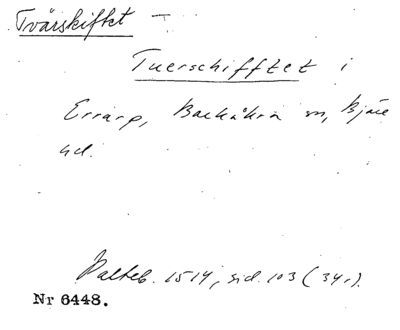 Tvärskiftet —
Tuerschifftet i
Errarp, Barkåkra sn, Bjäre
hd.
Palteb. 1514, sid. 103 (34r).
Nr 6448.